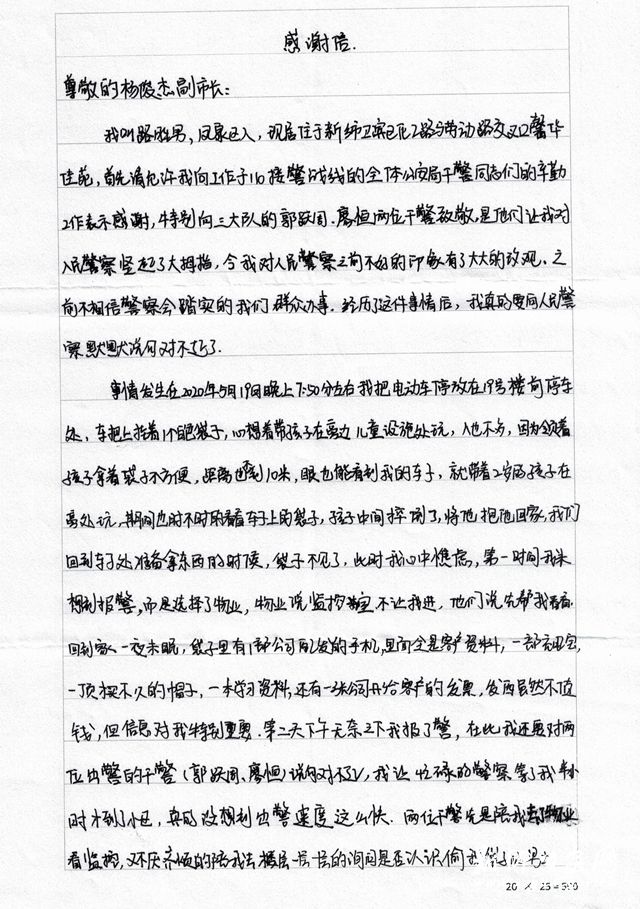 感谢信.
尊敬的杨俊杰副市长:
我叫路胜男,凤泉区人,现居住于新乡卫滨区化工路与劳动路交叉口馨华
佳苑,首先请允许我向工作于110接警战线的全体公安局干警同志们的辛勤
工作表示感谢,特别向三大队的郭跃周.廖恒两位干警致敬,是他们让我对
人民警察竖起了大拇指,令我对人民警察之前不好的印象有了大大的改观.之
前不相信警察会踏实的我们群众办事.经历了这件事情后,我真的要向人民警
察默默说句对不起了.
事情发生在2020年5月19日晚上7:50分左右我把电动车停放在19号楼前停车
处,车把上挂着1个白色袋子,心想着带孩子在旁边儿童设施处玩,人也不多,因为领着
孩子拿着袋子不方便,距离也就10米,眼也能看到我的车子,就带着2岁的孩子在
旁处玩,期间也时不时的看看车子上的袋子,孩子中间摔倒了,将他抱他回家,我们
回到车子处准备拿东西的时候,袋子不见了,此时我心中焦虑,第一时间我未
想到报警,而是选择了物业,物业说监控室不让我进,他们说先帮我看看.
回到家一夜未眠,袋子里有1部公司配发的手机,里面全是客户资料,一部充电宝,
一顶买不久的帽子,一本学习资料,还有一张公司开给客户的发票,东西虽然不值
钱,但信息对我特别重要.第二天下午无奈之下我报了警,在此我还要对两
位出警的干警(郭跃周、廖恒)说句对不起,我让忙碌的警察等了我半小
时才到小区,真的没想到出警速度这么快.两位干警先是陪我去了物业
看监控,又不厌其烦的陪我去楼层一层一层的询问是否认识偷我袋子的男
20 × 25 = 500